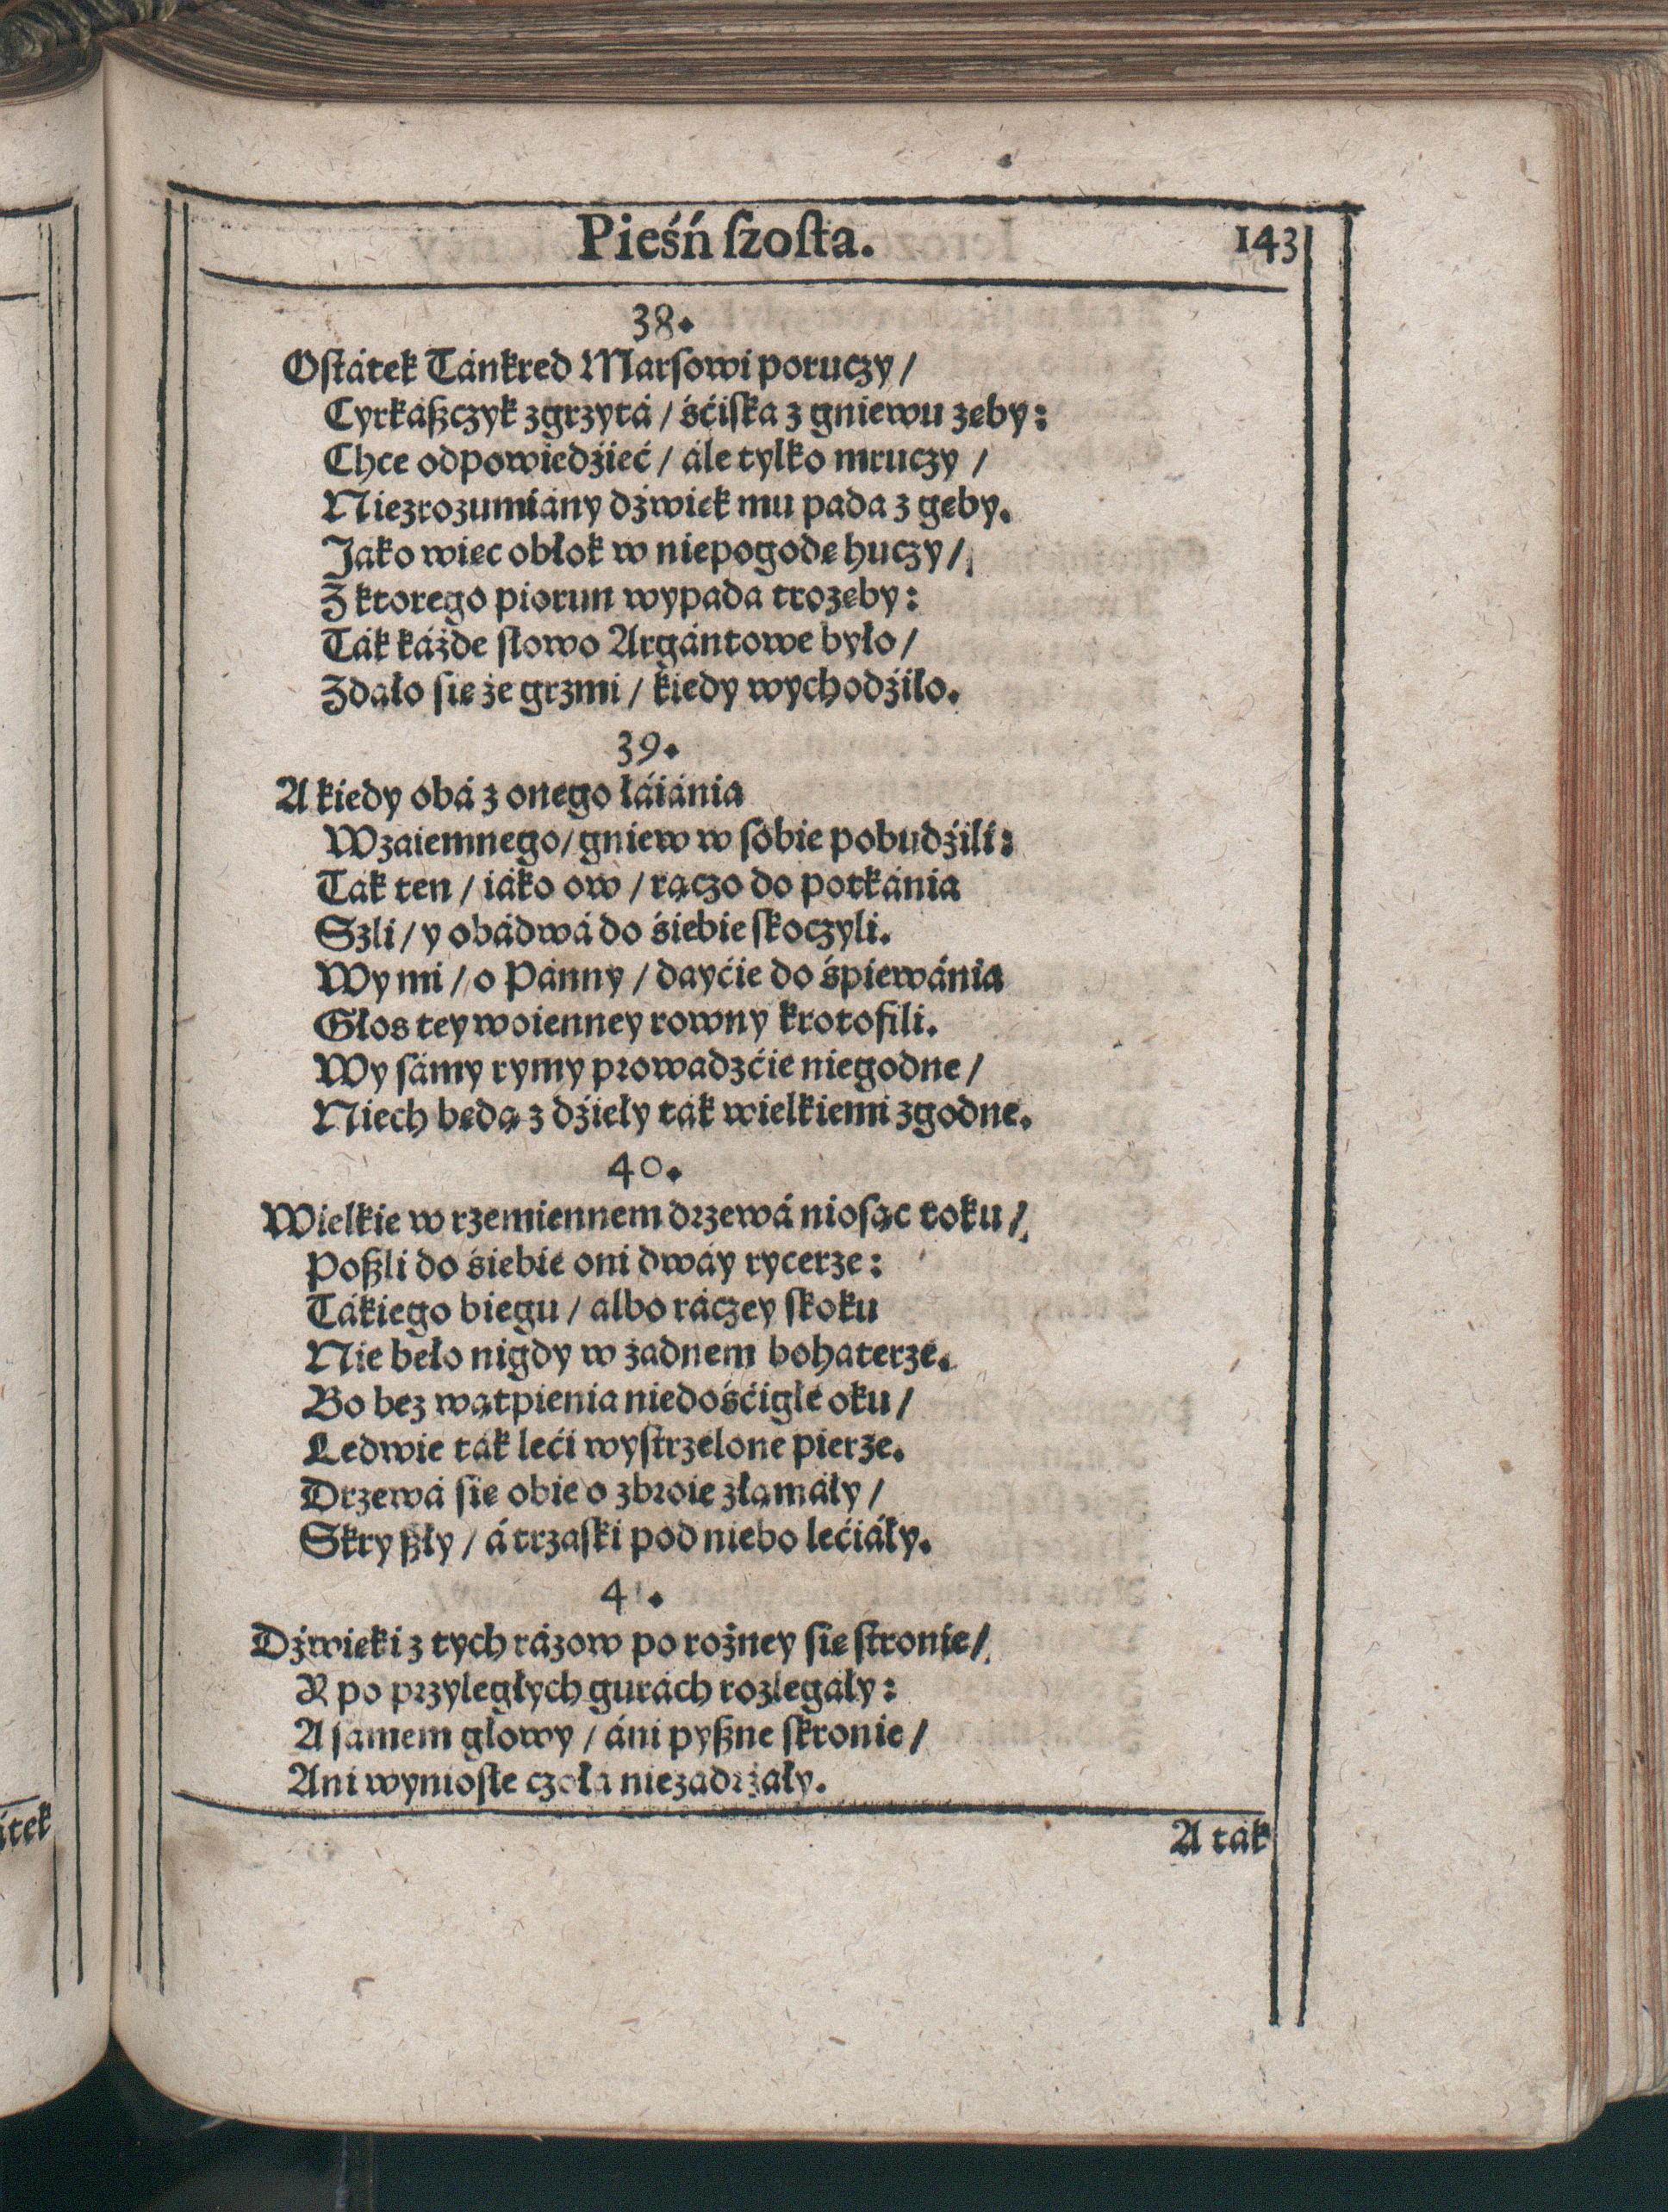 Pieśń ſzoſta.
143
38.
Oſtátek Tánkred Marſowi poruczy /
Cyrkáßczyk zgrzytá / śćiſka z gniewu zęby:
Chce odpowiedźieć / ále tylko mruczy /
Niezrozumiány dźwięk mu pada z gęby.
Jako więc obłok w niepogodę huczy /
Z ktorego piorun wypada trozęby:
Ták káżde słowo Argántowe było /
Zdało się że grzmi / kiedy wychodźiło.
39.
A kiedy obá z onego łáiánia
Wzaiemnego / gniew w sobie pobudźili:
Ták ten / iáko ow / rączo do potkánia
Szli / y obádwá do śiebie ſkoczyli.
Wy mi / o Pánny / dayćie do śpiewánia
Głos tey woienney rowny krotofili.
Wy sámy rymy prowadzćie niegodne /
Niech będą z dźieły ták wielkiemi zgodne.
40.
Wielkie w rzemiennem drzewá nioſąc toku /
Poßli do śiebie oni dwáy rycerze:
Tákiego biegu / albo ráczey ſkoku
Nie beło nigdy w żadnem bohaterze.
Bo bez wątpienia niedośćigłe oku /
Ledwie ták leći wyſtrzelone pierze.
Drzewá się obie o zbroie złamáły /
Skryßły / á trzaſki pod niebo lećiáły.
41.
Dźwięki z tych rázow po rożney się ſtronie /
Y po przyległych gurách rozlegáły:
A samem głowy / áni pyßne ſkronie /
Ani wynioſłe czoła niezadrżáły.
A ták
átek